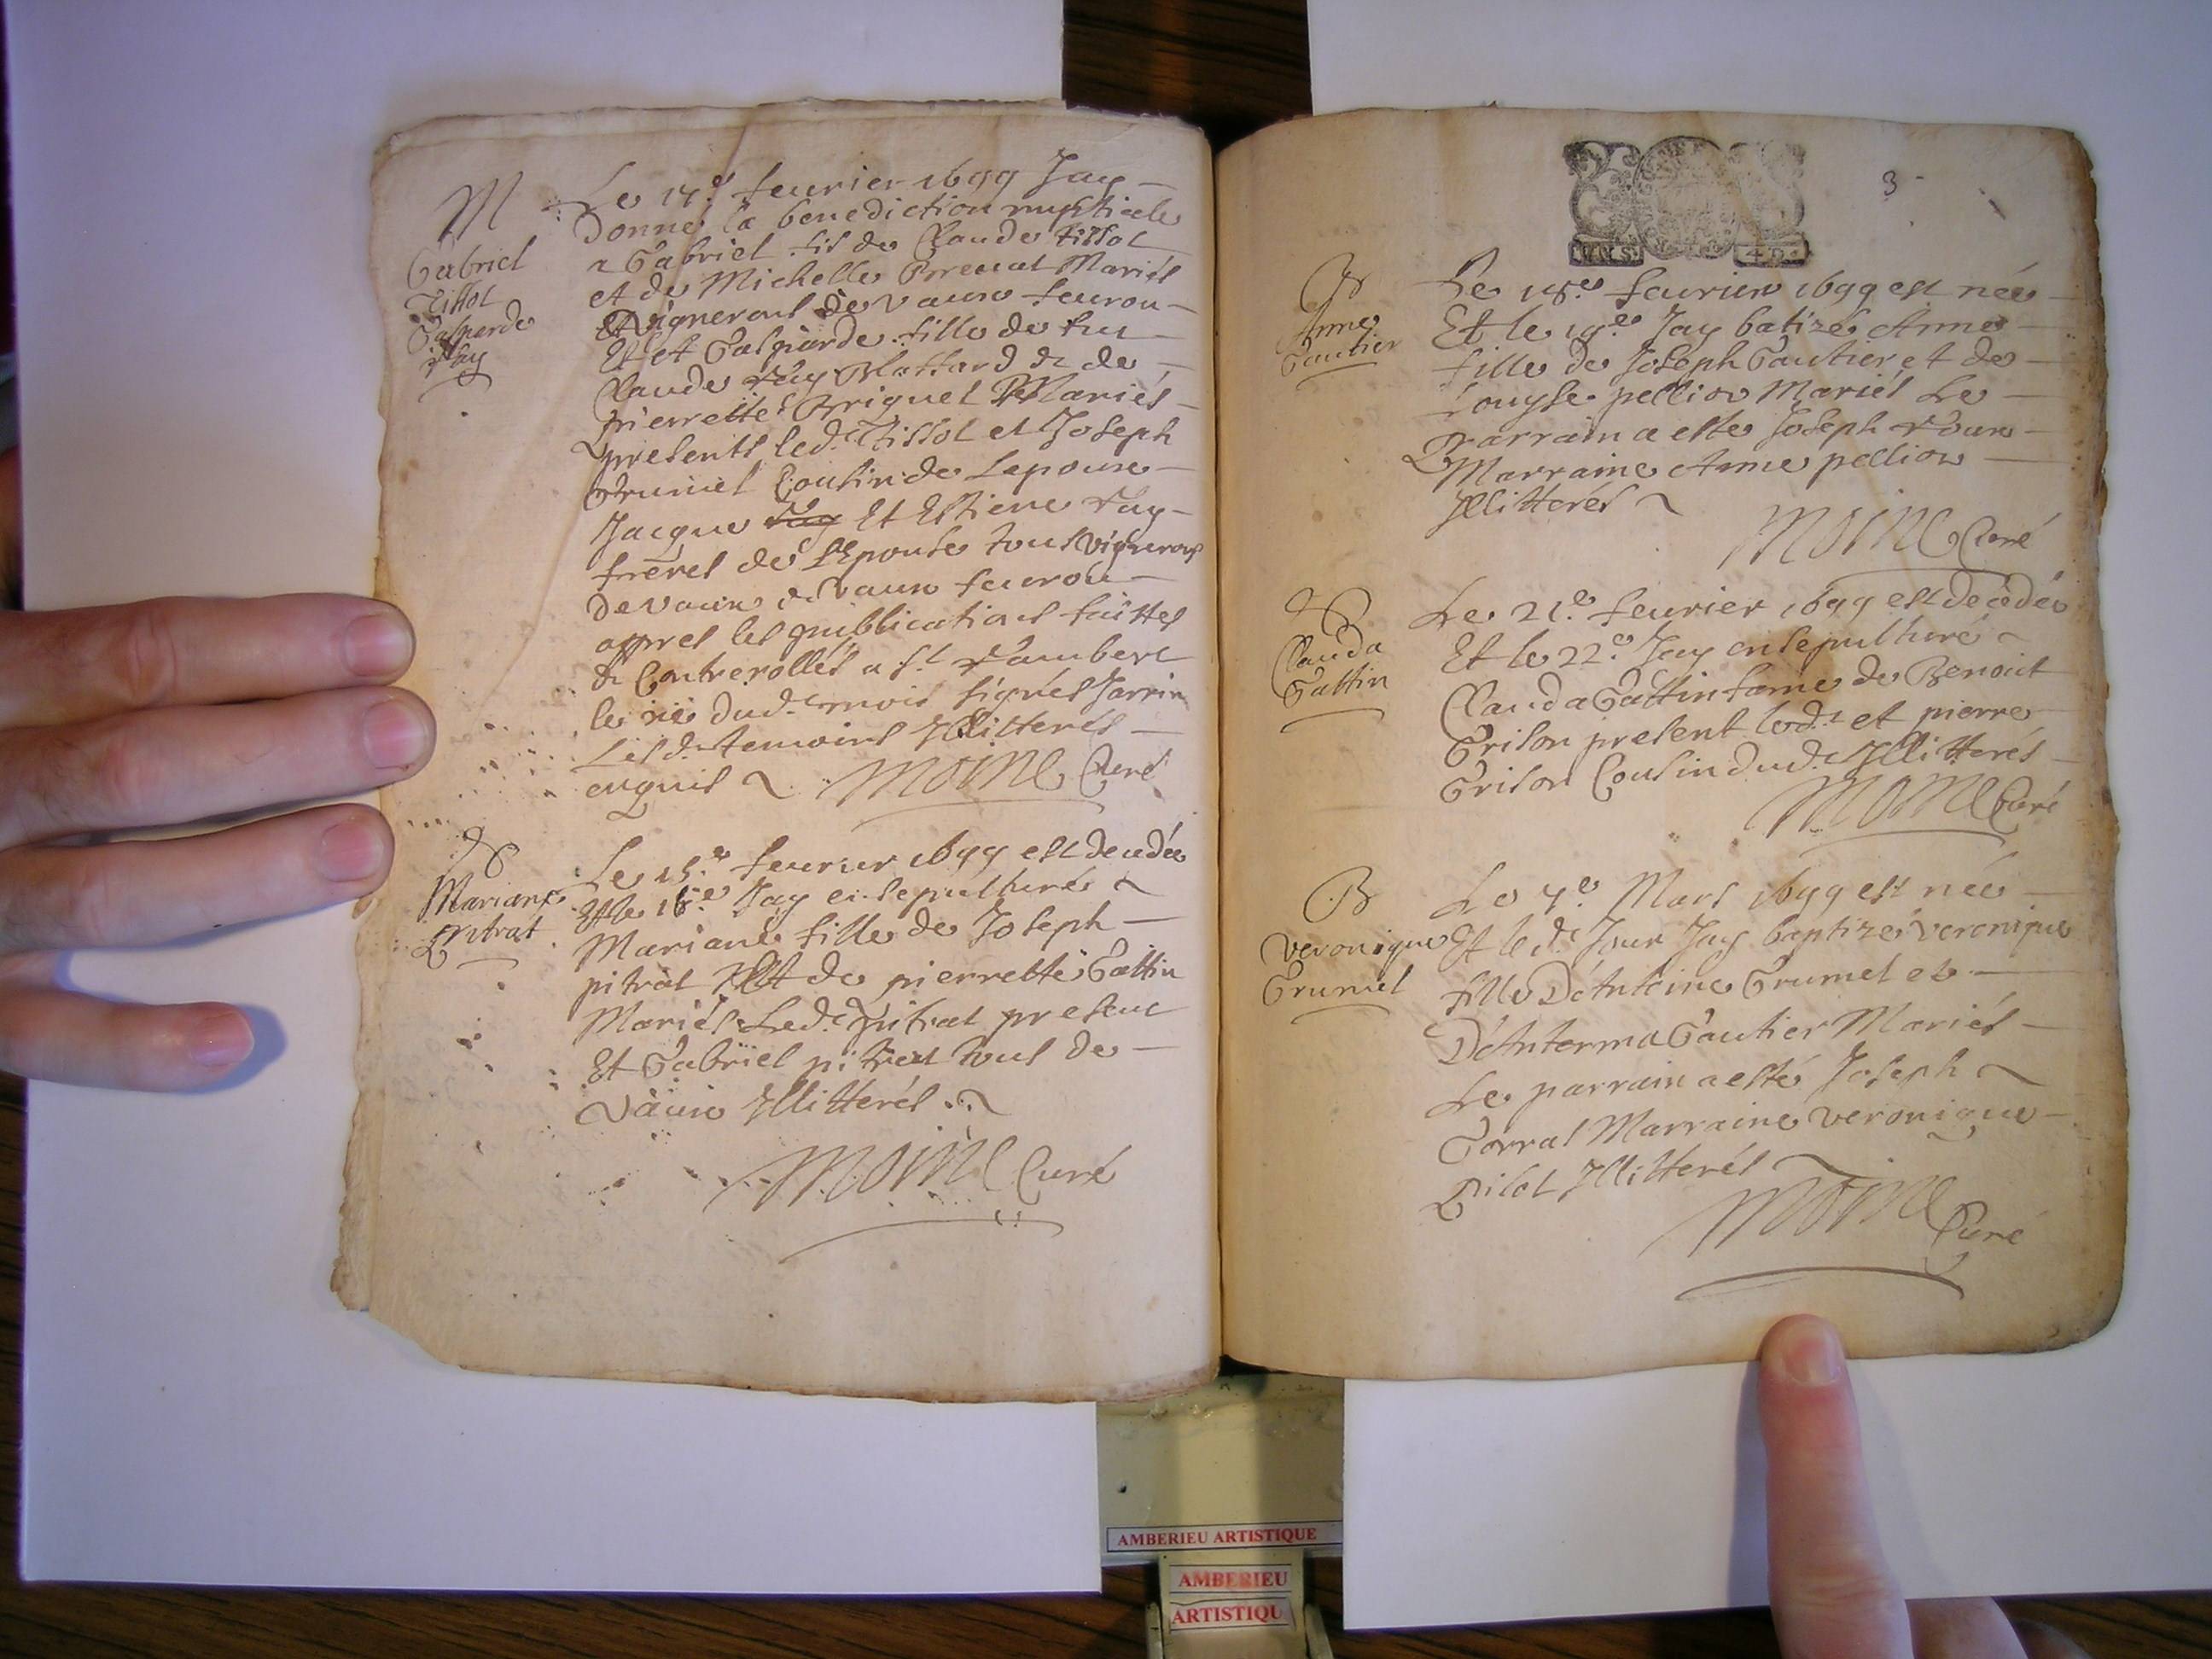 M
Gabriel
Tissot
Gasparde
Fay
Le 14.e feurier 1699 Jay
Donné la benediction nuptiale
a Gabriel fils de Claude Tissot
et de Michelle Brenat Mariés
Vignerons de Vaux feurou
Et Gasparde fille de feu
Claude Fay Blattard & de
pierrette Briguet Mariés
presents led.t Tissot et Joseph
Grumet Cousin de Lepoux
Jacque Et Estiene Fay
freres de L'Epouse tous Vignerons
De Vaux & Vaux feurou
appres les publications faittes
& Controrollés a s.t Rambert
le dud.t mois signés Jarrin
Lesd.ts temoins Jllitterés
enquis Moine Curé
Mariane
pitrat
Le 15.e feurier 1699 est decedée
Et le 16.e Jay ensepulturé
Mariane fille de Joseph
pitrat Et de pierrette Gattin
Mariés Led.t pitrat present
Et Gabriel pitrat tous de
Vaux Jllitterés
Moine Curé
3
4 D.
B
Anne
Gautier
Le 18.e feurier 1699 est née
Et le 19.e Jay batizé Anne
fille de Joseph Gautier et de
Louyse pellion Mariés Le
Parrain a esté Joseph
Marraine Anne pellion
Jllitterés
Moine Curé
Clauda
Gattin
Le 21.e feurier 1699 est decedée
Et le 22.e Jay ensepulturé
Clauda Gattin fame de Benoict
Grison present led.t et pierre
Grison Cousin dud.t Jllitterés
Moine Curé
B
Veronique
Grumet
Le 4.e Mars 1699 est née
Et le d.t Jour Jay baptizé Veronique
fille D'Antoine Grumet et
D'Anterma Gautier Mariés
Le parrain a esté Joseph
Gorrat Marraine Veronique
Pilot Jllitterés
Moine
Curé
AMBERIEU ARTISTIQUE
AMBERIEU
ARTISTIQU